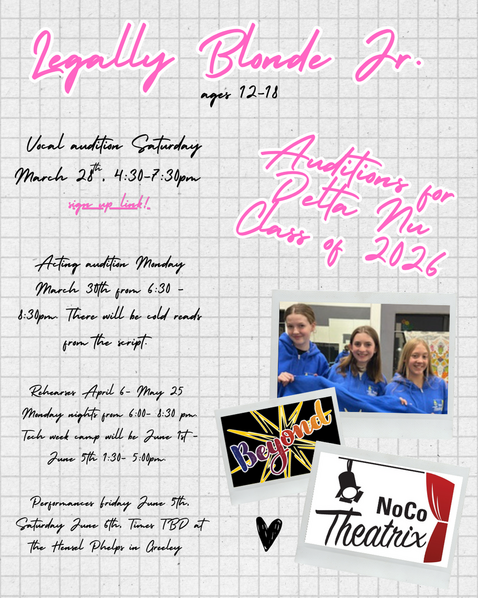 Legally Blonde Jr.
ages 12-18
Vocal audition Saturday
March 28th, 4:30-7:30pm
sign up link!
Auditions for
Delta Nu
Class of 2026
Acting audition Monday
March 30th from 6:30 -
8:30pm. There will be cold reads
from the script.
Rehearses April 6- May 25
Monday nights from 6:00- 8:30 pm.
Tech week camp will be June 1st -
June 5th 1:30- 5:00pm.
Beyond
Performances friday June 5th,
Saturday June 6th, Times TBD at
the Hensel Phelps in Greeley
NoCo
Theatrix